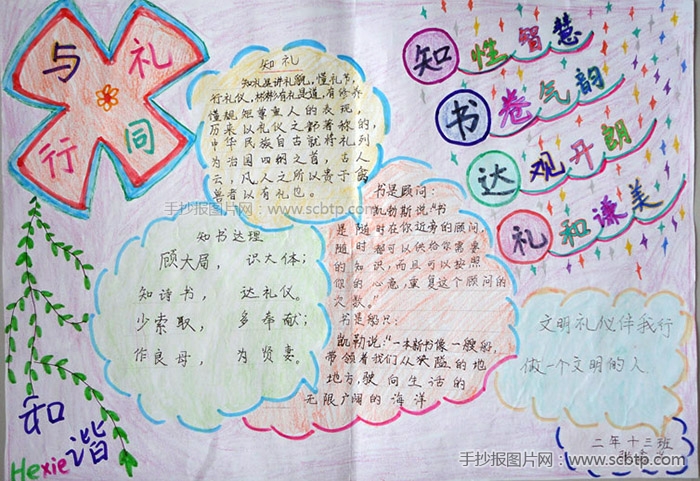 与礼
行同
知礼
知礼是讲礼貌,懂礼节,
行礼仪,彬彬有礼是道,有修养
懂规矩尊重人的表现,
历来以礼仪之邦著称的,
中华民族自古就将礼列
为治国四纲之首,古人
云,凡人之所以贵于禽
兽者以有礼也。
知性智慧
书卷气韵
达观开朗
礼和谦美
手抄报图片网:www.scbtp.com
知书达理
顾大局, 识大体;
知诗书, 达礼仪。
少索取, 多奉献;
作良母, 为贤妻。
书是顾问:
凯勃斯说:"书
是随时在你近旁的顾问,
随时都可以供给你需要
的知识,而且可以按照
你的心意,重复这个顾问的
次数。"
书是船只:
凯勒说:"一本新书像一艘船,
带领着我们从狭隘的地
地方,驶向生活的
无限广阔的海洋
文明礼仪伴我行
做一个文明的人
和谐
Hexie
二年十三班
手抄报图片网:www.scbtp.com